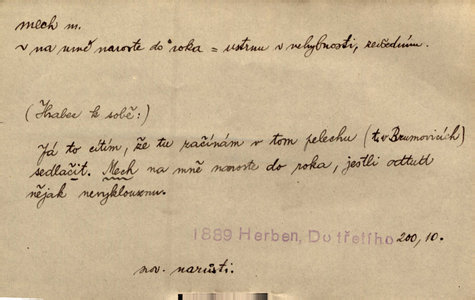 mech m.
v na mně naroste do roka = ustrnu v nehybnosti, zešednu.
(Hrabec k sobě:)
Já to cítím, že tu začínám v tom pelechu (t. v Brumovicích)
sedlačit. Mech na mně naroste do roka, jestli odtud
nějak nevyklouznu.
1889 Herben, Do třetího 200, 10.
nov. narůsti.